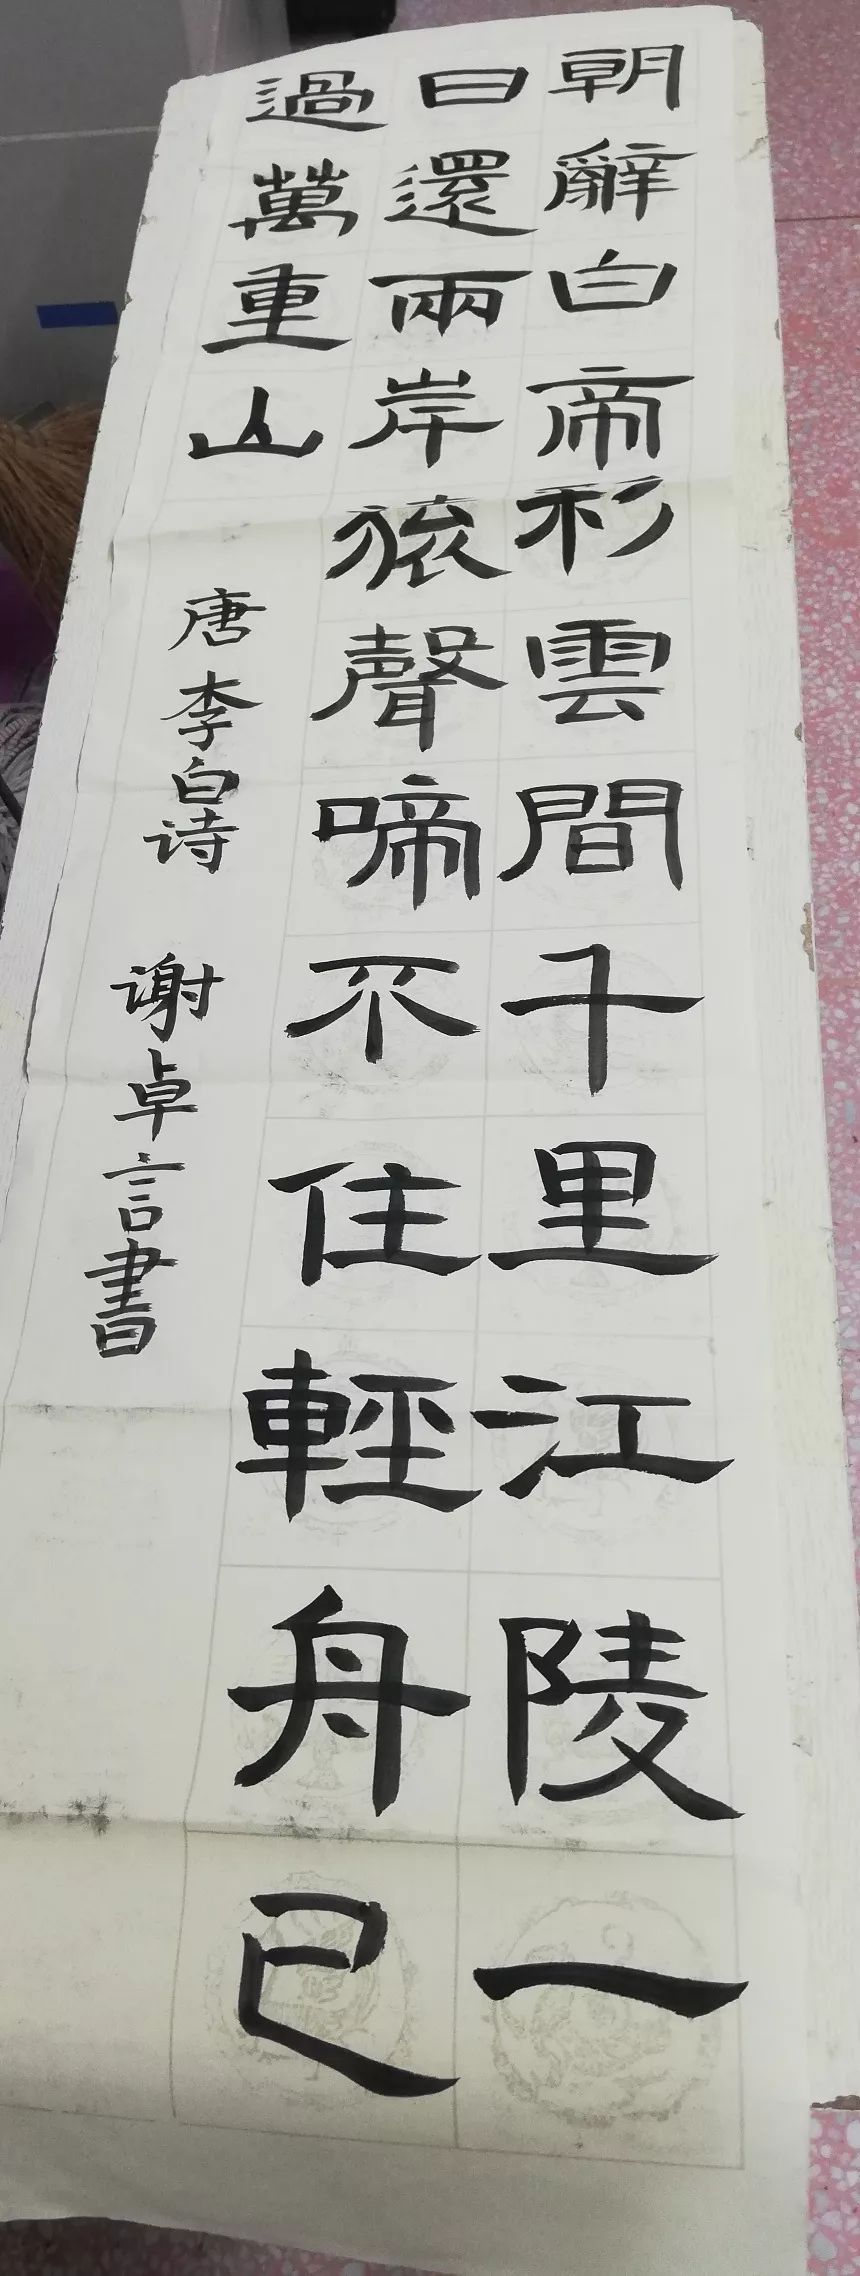 朝辭白帝彩雲間千里江陵一
日還兩岸猿聲啼不住輕舟已
過萬重山
唐李白诗 谢卓言書